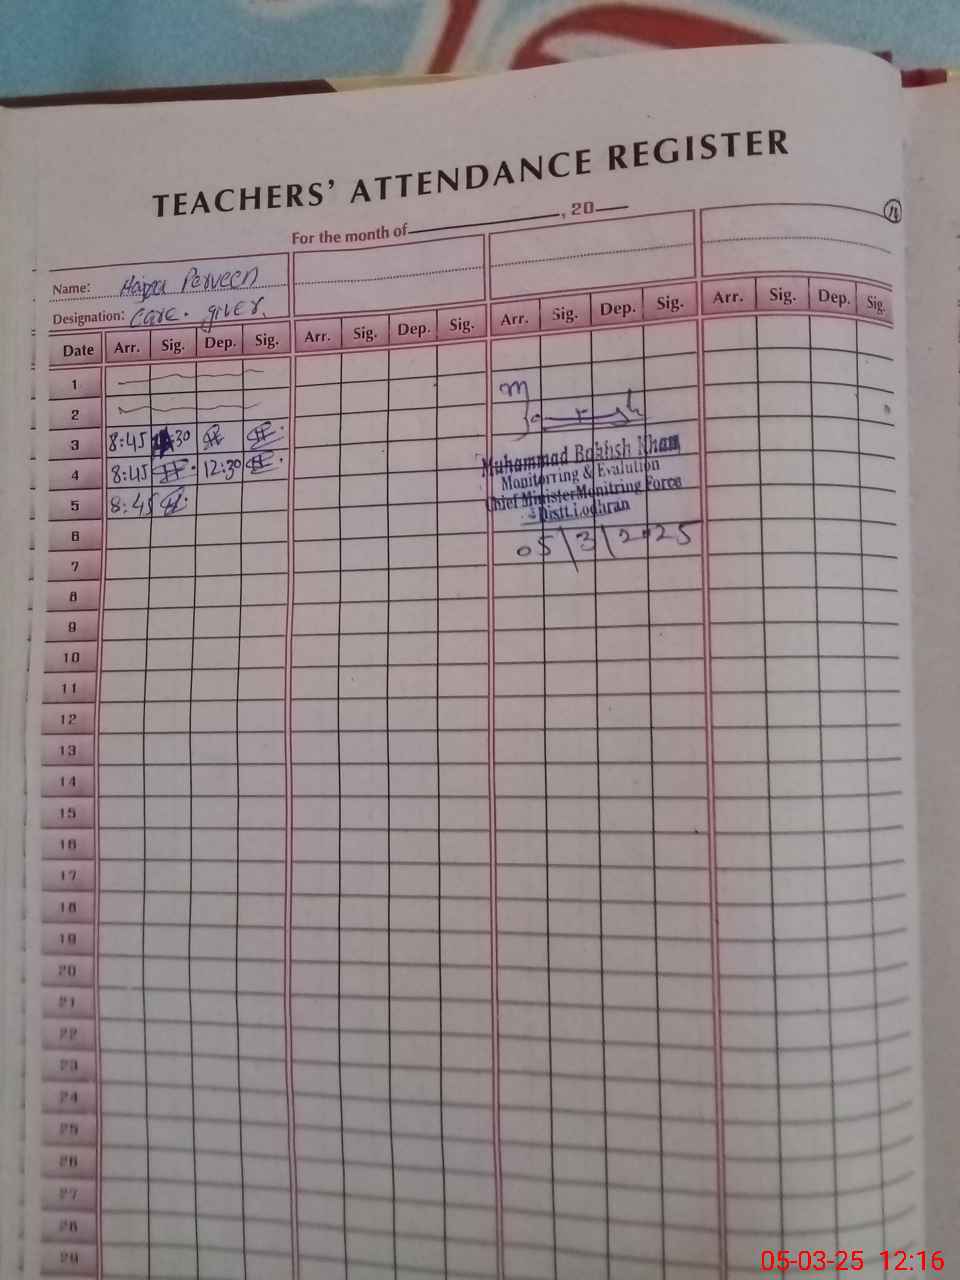 TEACHERS' ATTENDANCE REGISTER
For the month of , 20
11
Name: Perveen
Designation: care. giver.
Date Arr. Sig. Dep. Sig. Arr. Sig. Dep. Sig. Arr. Sig. Dep. Sig. Arr. Sig. Dep. Sig.
1
2
3 8:45 30
4 8:45 12:30
5 8:45
6
7
8
9
10
11
12
13
14
15
16
17
18
19
20
21
22
23
24
25
26
27
28
29
Muhammad Bakhsh Khan
Monitorring & Evalution
Chief Minister Monitring Force
Distt. Lodhran
05/3/2025
05-03-25 12:16